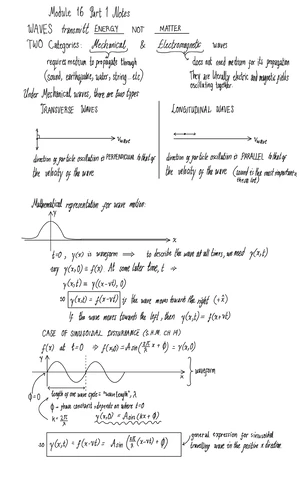 Module 16 Part 1 Notes
WAVES transmit ENERGY NOT MATTER
TWO Categories: Mechanical & Electromagnetic waves
requires medium to propagate through
(sound, earthquake, water, string.. etc)
does not need medium for its propagation
They are literally electric and magnetic fields
oscillating together.
Under Mechanical waves, there are two types
TRANSVERSE WAVES
Vwave
direction of particle oscillation is PERPENDICULAR to that of
the velocity of the wave
LONGITUDINAL WAVES
Vwave
direction of particle oscillation is PARALLEL to that of
the velocity of the wave (sound is the most important in
Mathematical representation for wave motion:
y
x
t=0, y(x) is waveform ⇒ to describe the wave at all times, we need y(x,t)
say y(x,0) = f(x) At some later time, t ⇒
y(x,t) = y((x-vt), 0)
so y(x,t) = f(x-vt) if the wave moves towards the right (+x̂)
If the wave moves towards the left, then y(x,t) = f(x+vt)
CASE OF SINUSOIDAL DISTURBANCE (S.H.M. CH 14)
f(x) at t=0 ⇒ f(x,0) = A sin(2π/λ x + ϕ) = y(x,0)
y
x
waveform
ϕ=0
length of one wave cycle = "wavelength", λ
ϕ → phase constant → depends on where t=0
k = 2π/λ
y(x,0) = A sin(kx + ϕ)
so y(x,t) = f(x-vt) = A sin(2π/λ (x-vt) + ϕ)
general expression for sinusoidal
travelling wave in the positive x direction